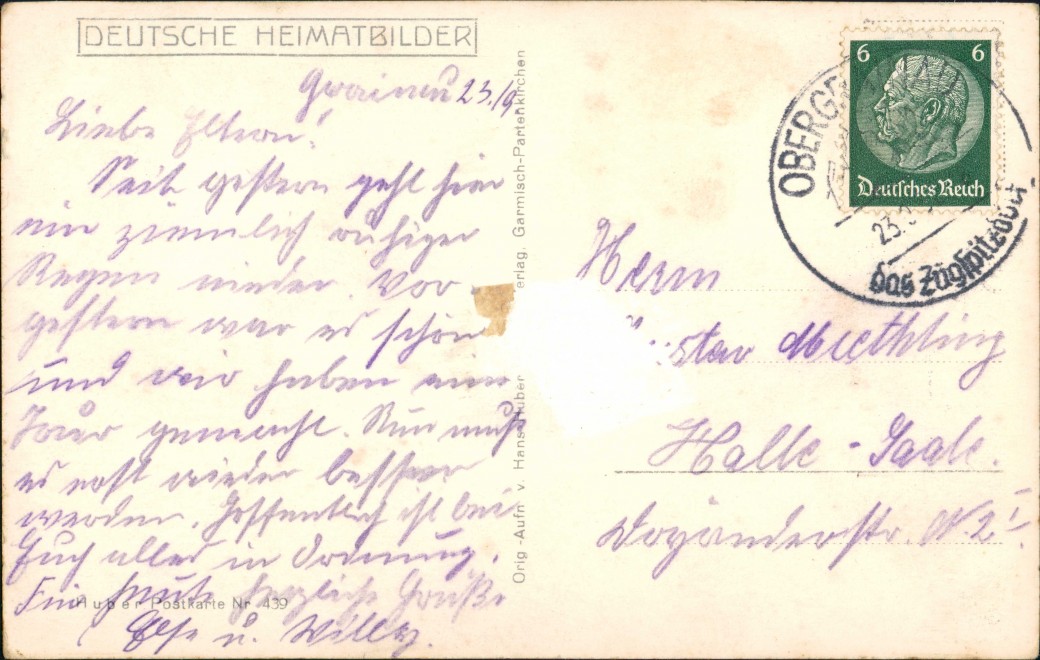 DEUTSCHE HEIMATBILDER
Grainau 23./9
Liebe Eltern!
Seit gestern geht hier
ein ziemlich ruhiger
Regen nieder. Vor
gestern war es schön
und wir haben eine
Tour gemacht. Nun muß
es erst wieder besser
werden. Hoffentlich ist bei
Euch alles in Ordnung.
Für heute herzliche Grüße
Else u. Willy.
Huber Postkarte Nr. 439
Orig.-Aufn. v. Hans Huber
erlag, Garmisch-Partenkirchen
6 6
Deutsches Reich
OBERGRAINAU
23.
das Zugspitzdorf
Herrn
stav Miethling
Halle - Saale.
Str. N. 2 I